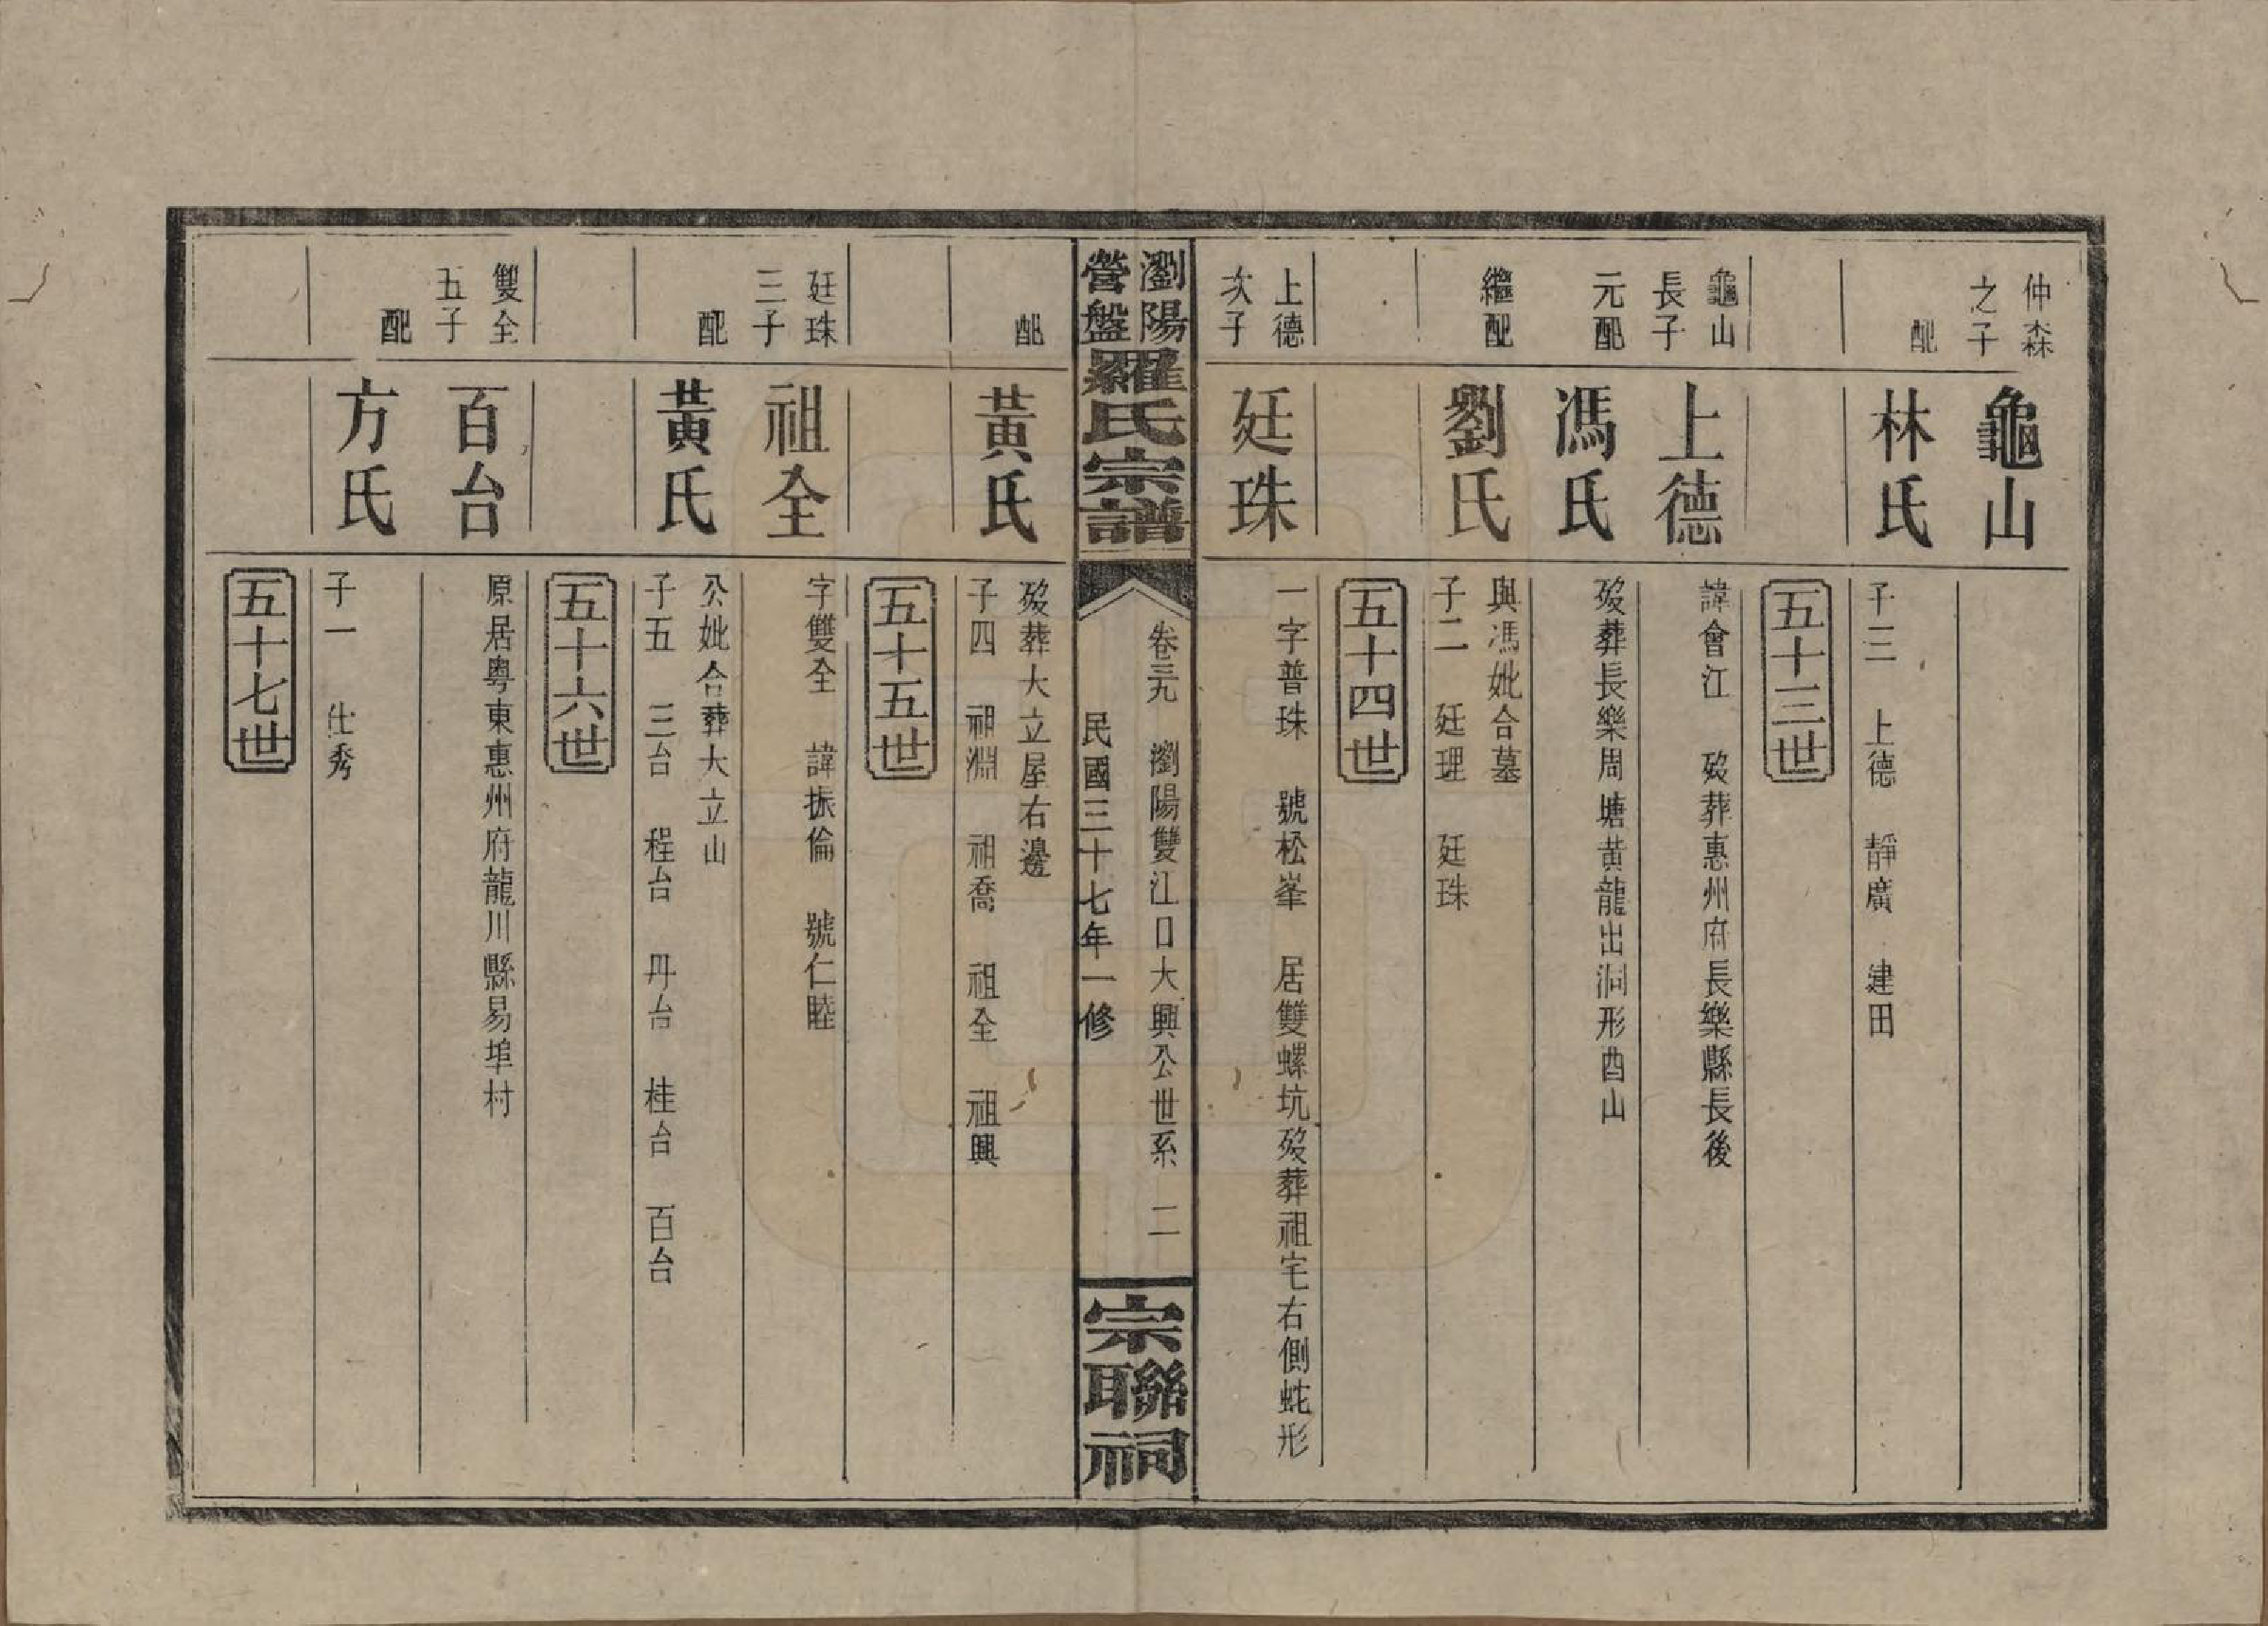 仲森
之子
龜山
配
林氏
子三 上德 靜廣 建田
五十三世
龜山
長子
上德
諱會江 歿葬惠州府長樂縣長後
元配
馮氏
歿葬長樂周塘黃龍出洞形酉山
繼配
劉氏
與馮妣合墓
子二 廷理 廷珠
五十四世
上德
次子
廷珠
一字普珠 號松峯 居雙螺坑歿葬祖宅右側蛇形
瀏陽
營盤
羅氏宗譜
卷三九 瀏陽雙江口大興公世系 二
民國三十七年一修
宗聯祠
配
黃氏
歿葬大立屋右邊
子四 祖淵 祖喬 祖全 祖興
五十五世
廷珠
三子
祖全
字雙全 諱振倫 號仁睦
配
黃氏
公妣合葬大立山
子五 三台 程台 丹台 桂台 百台
五十六世
雙全
五子
百台
原居粵東惠州府龍川縣易埠村
配
方氏
子一 仕秀
五十七世